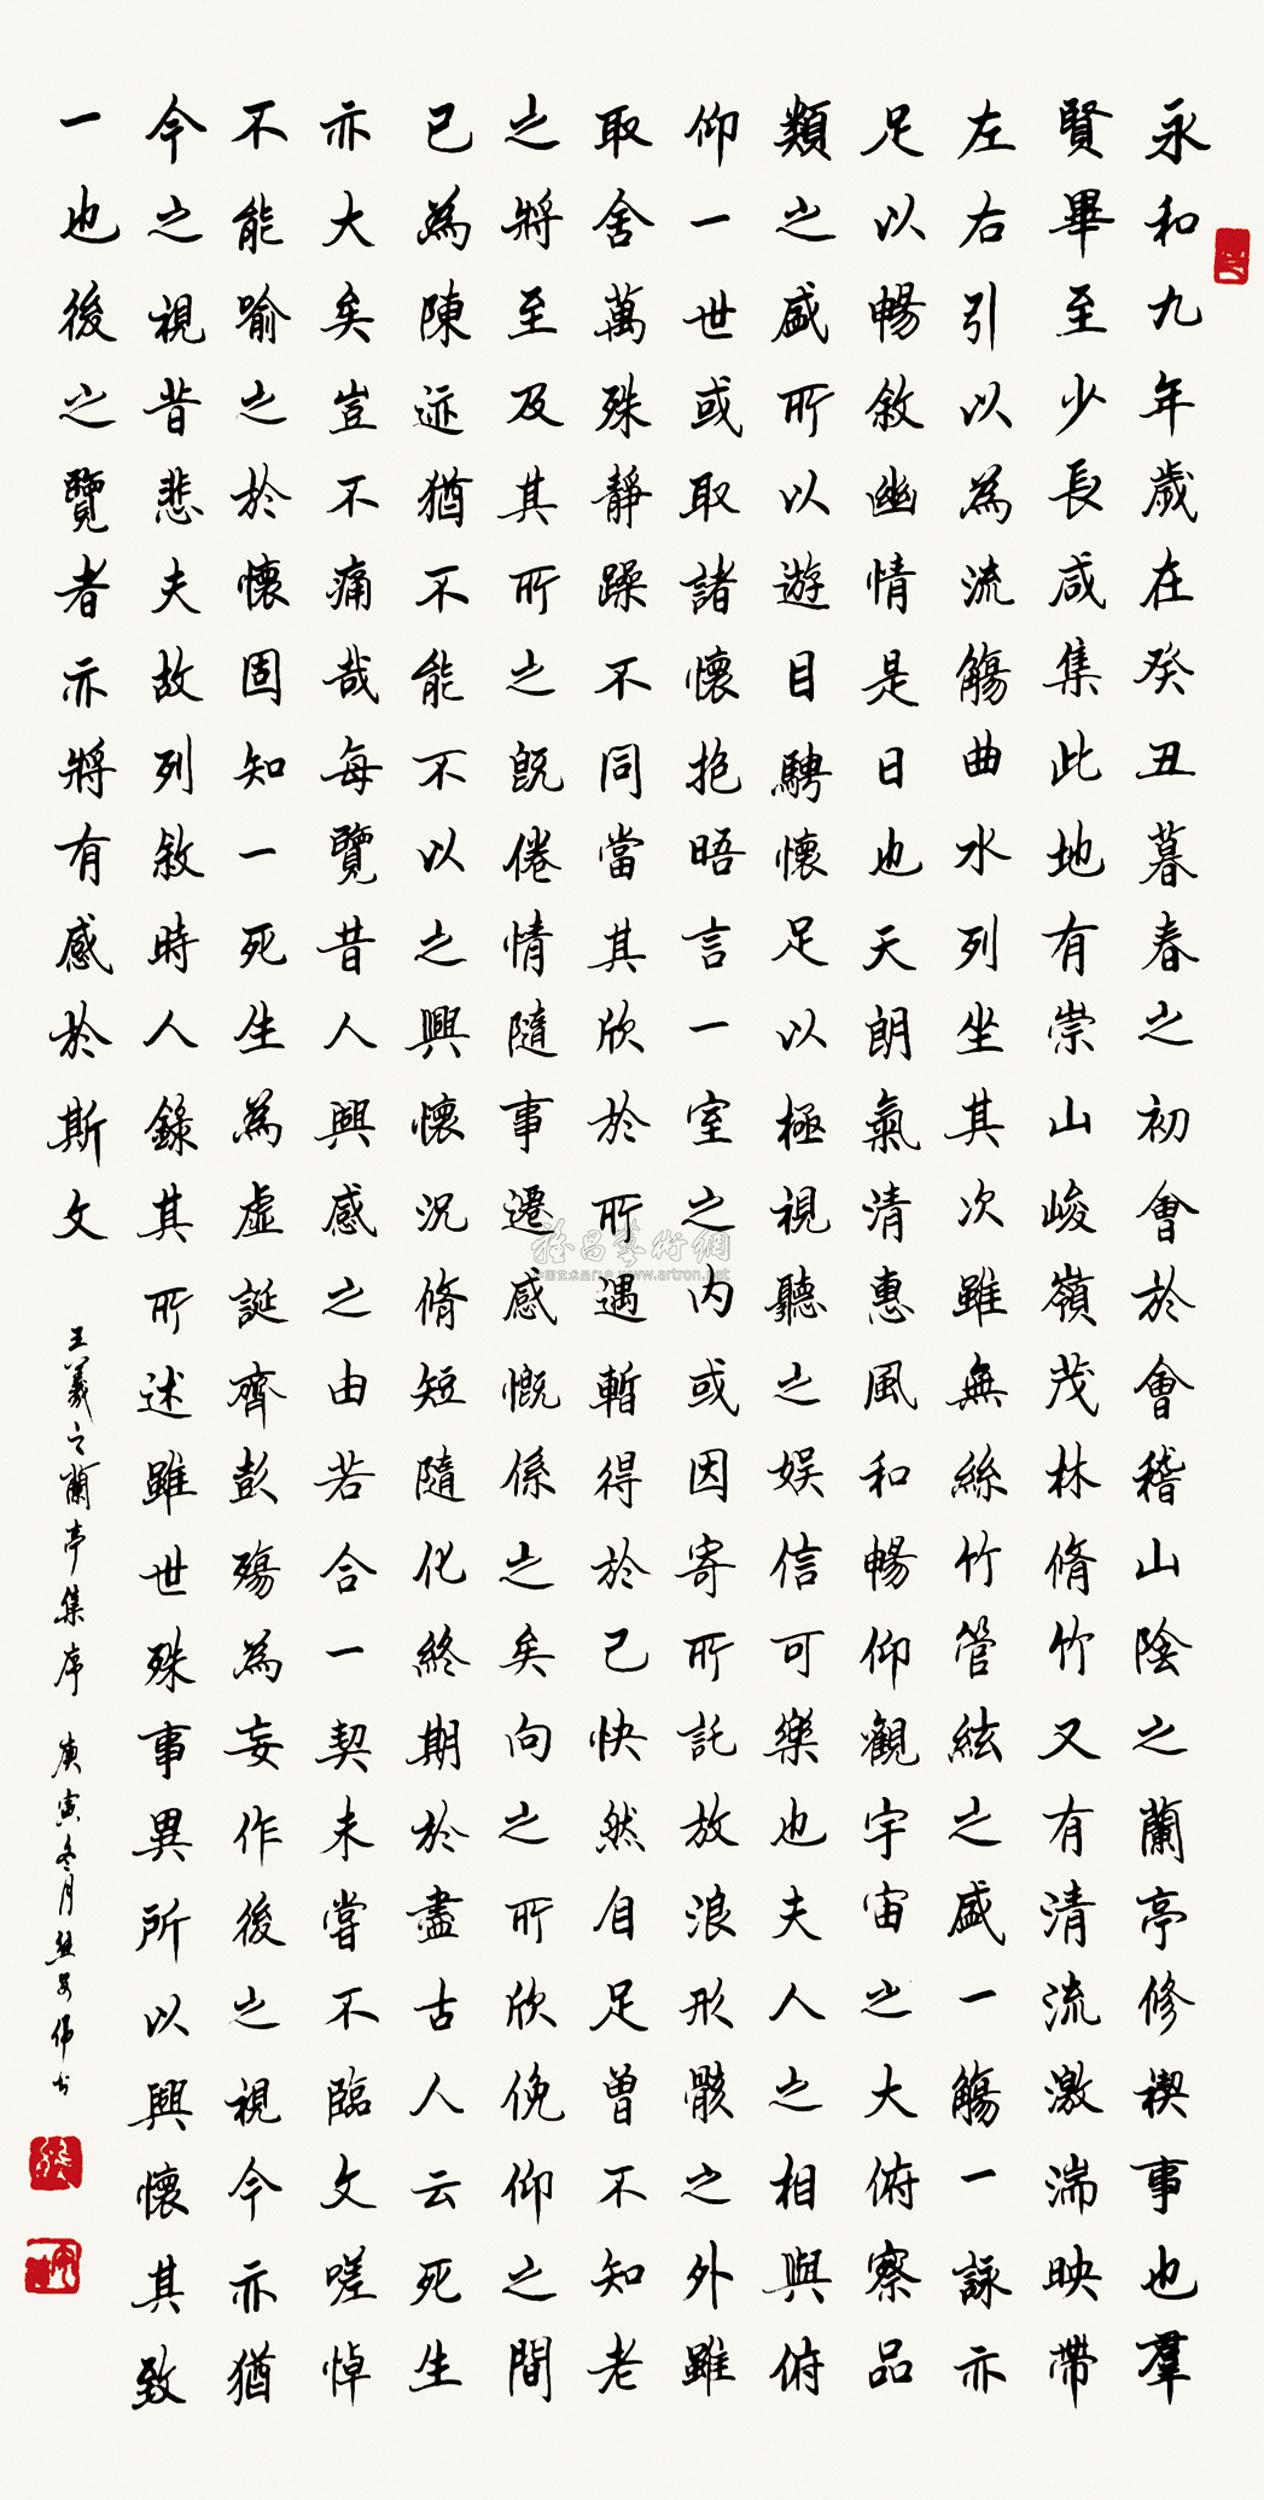 永和九年歲在癸丑暮春之初會於會稽山陰之蘭亭修禊事也羣
賢畢至少長咸集此地有崇山峻嶺茂林脩竹又有清流激湍映帶
左右引以為流觴曲水列坐其次雖無絲竹管絃之盛一觴一詠亦
足以暢敘幽情是日也天朗氣清惠風和暢仰觀宇宙之大俯察品
類之盛所以遊目騁懷足以極視聽之娛信可樂也夫人之相與俯
仰一世或取諸懷抱晤言一室之内或因寄所託放浪形骸之外雖
取舍萬殊靜躁不同當其欣於所遇暫得於己快然自足曾不知老
之將至及其所之既倦情隨事遷感慨係之矣向之所欣俛仰之間
已為陳迹猶不能不以之興懷況脩短隨化終期於盡古人云死生
亦大矣豈不痛哉每覽昔人興感之由若合一契未嘗不臨文嗟悼
不能喻之於懷固知一死生為虛誕齊彭殤為妄作後之視今亦猶
今之視昔悲夫故列敘時人錄其所述雖世殊事異所以興懷其致
一也後之覽者亦將有感於斯文
王羲之蘭亭集序 庚寅冬月
雅昌藝術網
中国艺术品门户 www.artron.net